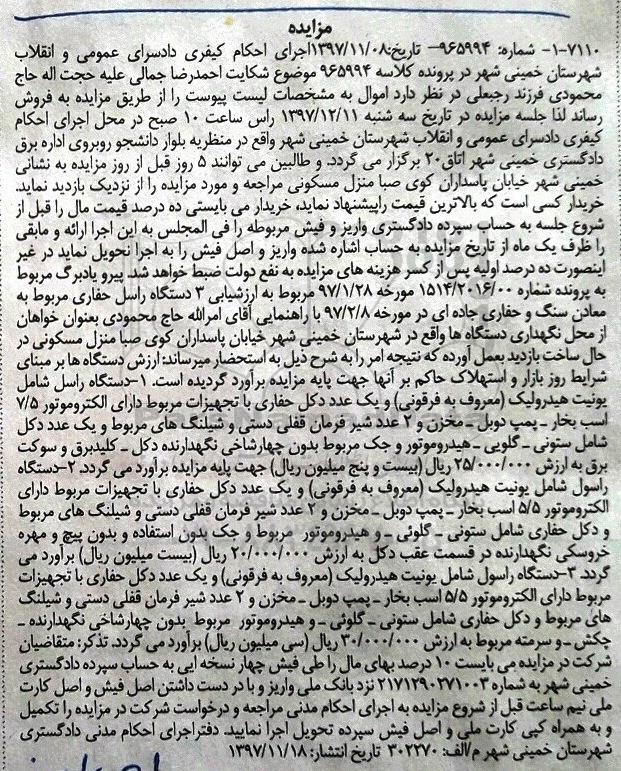 مزایده
۷۱۱۰-۱- شماره: ۹۶۵۹۹۴- تاریخ:۱۳۹۷/۱۱/۰۸اجرای احکام کیفری دادسرای عمومی و انقلاب
شهرستان خمینی شهر در پرونده کلاسه ۹۶۵۹۹۴ موضوع شکایت احمدرضا جمالی علیه حجت اله حاج
محمودی فرزند رجبعلی در نظر دارد اموال به مشخصات لیست پیوست را از طریق مزایده به فروش
رساند لذا جلسه مزایده در تاریخ سه شنبه ۱۳۹۷/۱۲/۱۱ راس ساعت ۱۰ صبح در محل اجرای احکام
کیفری دادسرای عمومی و انقلاب شهرستان خمینی شهر واقع در منظریه بلوار دانشجو روبروی اداره برق
دادگستری خمینی شهر اتاق۲۰ برگزار می گردد. و طالبین می توانند ۵ روز قبل از روز مزایده به نشانی
خمینی شهر خیابان پاسداران کوی صبا منزل مسکونی مراجعه و مورد مزایده را از نزدیک بازدید نماید.
خریدار کسی است که بالاترین قیمت راپیشنهاد نماید، خریدار می بایستی ده درصد قیمت مال را قبل از
شروع جلسه به حساب سپرده دادگستری واریز و فیش مربوطه را فی المجلس به این اجرا ارائه و مابقی
را ظرف یک ماه از تاریخ مزایده به حساب اشاره شده واریز و اصل فیش را به اجرا تحویل نماید در غیر
اینصورت ده درصد اولیه پس از کسر هزینه های مزایده به نفع دولت ضبط خواهد شد. پیرو یادبرگ مربوط
به پرونده شماره ۱۵۱۴/۲۰۱۶/۰۰ مورخه ۹۷/۱/۲۸ مربوط به ارزشیابی ۳ دستگاه راسل حفاری مربوط به
معادن سنگ و حفاری جاده ای در مورخه ۹۷/۲/۸ با راهنمایی آقای امرالله حاج محمودی بعنوان خواهان
از محل نگهداری دستگاه ها واقع در شهرستان خمینی شهر خیابان پاسداران کوی صبا منزل مسکونی در
حال ساخت بازدید بعمل آورده که نتیجه امر را به شرح ذیل به استحضار میرساند: ارزش دستگاه ها بر مبنای
شرایط روز بازار و استهلاک حاکم بر آنها جهت پایه مزایده برآورد گردیده است. ۱-دستگاه راسل شامل
یونیت هیدرولیک (معروف به فرقونی) و یک عدد دکل حفاری با تجهیزات مربوط دارای الکتروموتور ۷/۵
اسب بخار ـ پمپ دوبل ـ مخزن و ۲ عدد شیر فرمان قفلی دستی و شیلنگ های مربوط و یک عدد دکل
شامل ستونی ـ گلویی ـ هیدروموتور و جک مربوط بدون چهارشاخی نگهدارنده دکل ـ کلیدبرق و سوکت
برق به ارزش ۲۵/۰۰۰/۰۰۰ ریال (بیست و پنج میلیون ریال) جهت پایه مزایده برآورد می گردد. ۲-دستگاه
راسول شامل یونیت هیدرولیک (معروف به فرقونی) و یک عدد دکل حفاری با تجهیزات مربوط دارای
الکتروموتور ۵/۵ اسب بخار ـ پمپ دوبل ـ مخزن و ۲ عدد شیر فرمان قفلی دستی و شیلنگ های مربوط
و دکل حفاری شامل ستونی ـ گلوئی ـ و هیدروموتور مربوط و جک بدون استفاده و بدون پیچ و مهره
خروسکی نگهدارنده در قسمت عقب دکل به ارزش ۲۰/۰۰۰/۰۰۰ ریال (بیست میلیون ریال) برآورد می
گردد. ۳-دستگاه راسول شامل یونیت هیدرولیک (معروف به فرقونی) و یک عدد دکل حفاری با تجهیزات
مربوط دارای الکتروموتور ۵/۵ اسب بخار ـ پمپ دوبل ـ مخزن و ۲ عدد شیر فرمان قفلی دستی و شیلنگ
های مربوط و دکل حفاری شامل ستونی ـ گلوئی ـ و هیدروموتور مربوط بدون چهارشاخی نگهدارنده ـ
چکش ـ و سرمته مربوط به ارزش ۳۰/۰۰۰/۰۰۰ ریال (سی میلیون ریال) برآورد می گردد. تذکر: متقاضیان
شرکت در مزایده می بایست ۱۰ درصد بهای مال را طی فیش چهار نسخه ایی به حساب سپرده دادگستری
خمینی شهر به شماره ۲۱۷۱۲۹۰۲۷۱۰۰۳ نزد بانک ملی واریز و با در دست داشتن اصل فیش و اصل کارت
ملی نیم ساعت قبل از شروع مزایده به اجرای احکام مدنی مراجعه و درخواست شرکت در مزایده را تکمیل
و به همراه کپی کارت ملی و اصل فیش سپرده تحویل اجرا نمایید. دفتراجرای احکام مدنی دادگستری
شهرستان خمینی شهر م/الف: ۳۰۲۲۷۰ تاریخ انتشار: ۱۳۹۷/۱۱/۱۸